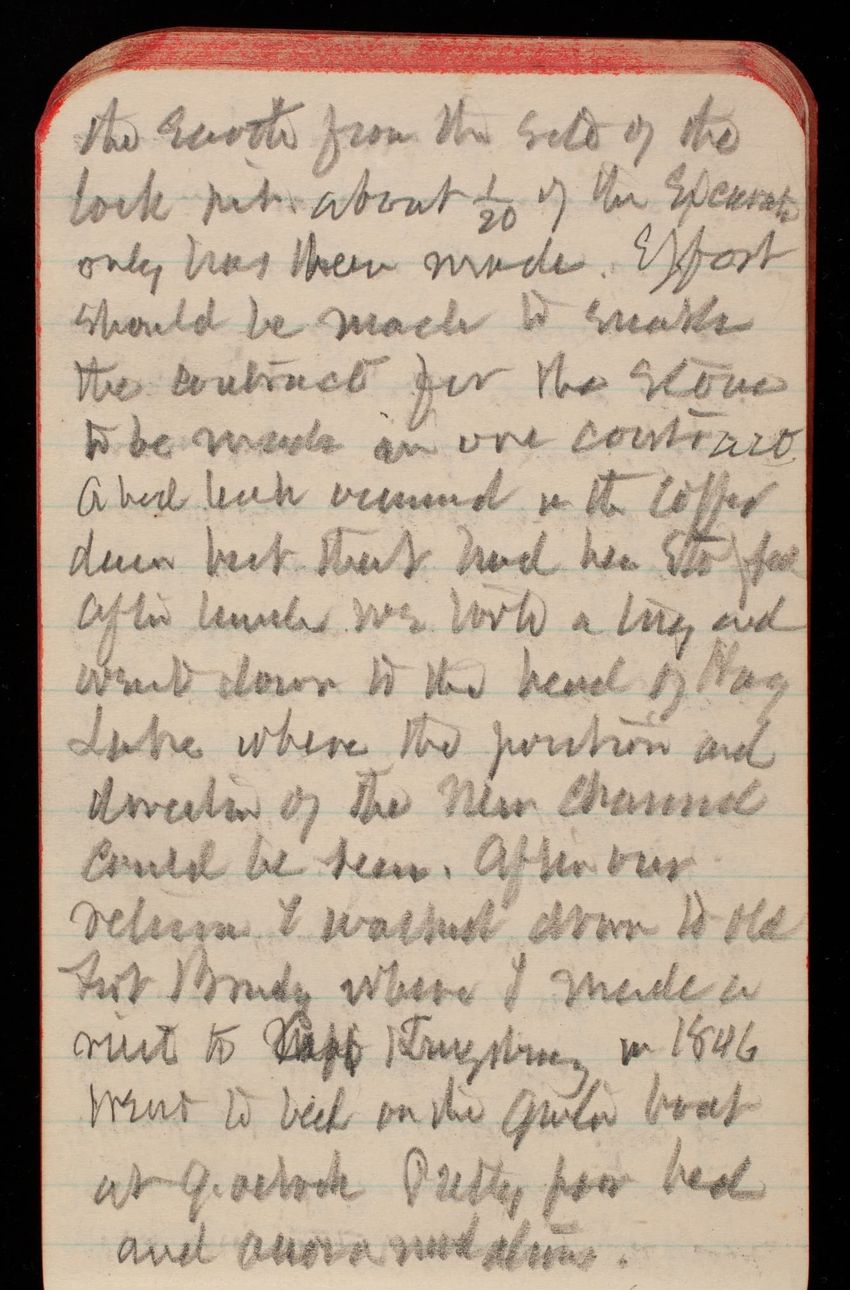 the Earth from the side of the
lock pit. about 1/20 of the Excavatn
only has been made. Effort
should be made to make
the contracts for the stone
to be made in one contract
A bad leak occurred in the coffer
dam but that had been
After lunch we took a tug and
went down to the head of Hay
Lake where the position and
direction of the New Channel
could be seen. After our
return I walked down to old
Fort Brady where I made a
visit to Kingsbury in 1846
Went to bed on the boat
at 9 oclock Pretty poor bed
and